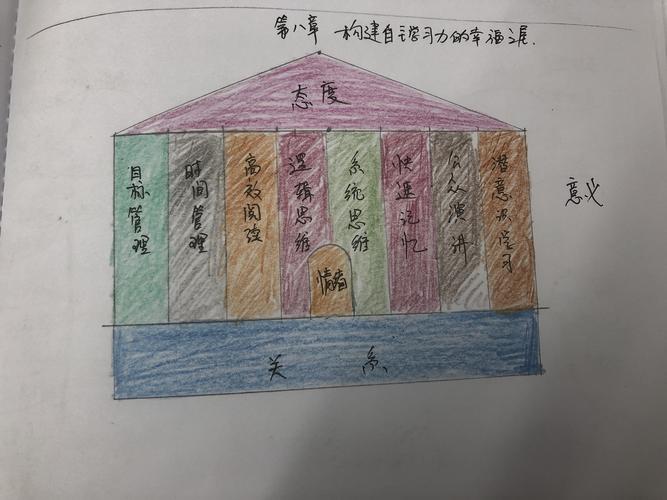 第八章 构建自主学习力的幸福之屋.
态度
目标管理
时间管理
高效阅读
逻辑思维
系统思维
快速记忆
公众演讲
潜意识学习
情绪
意义
关系